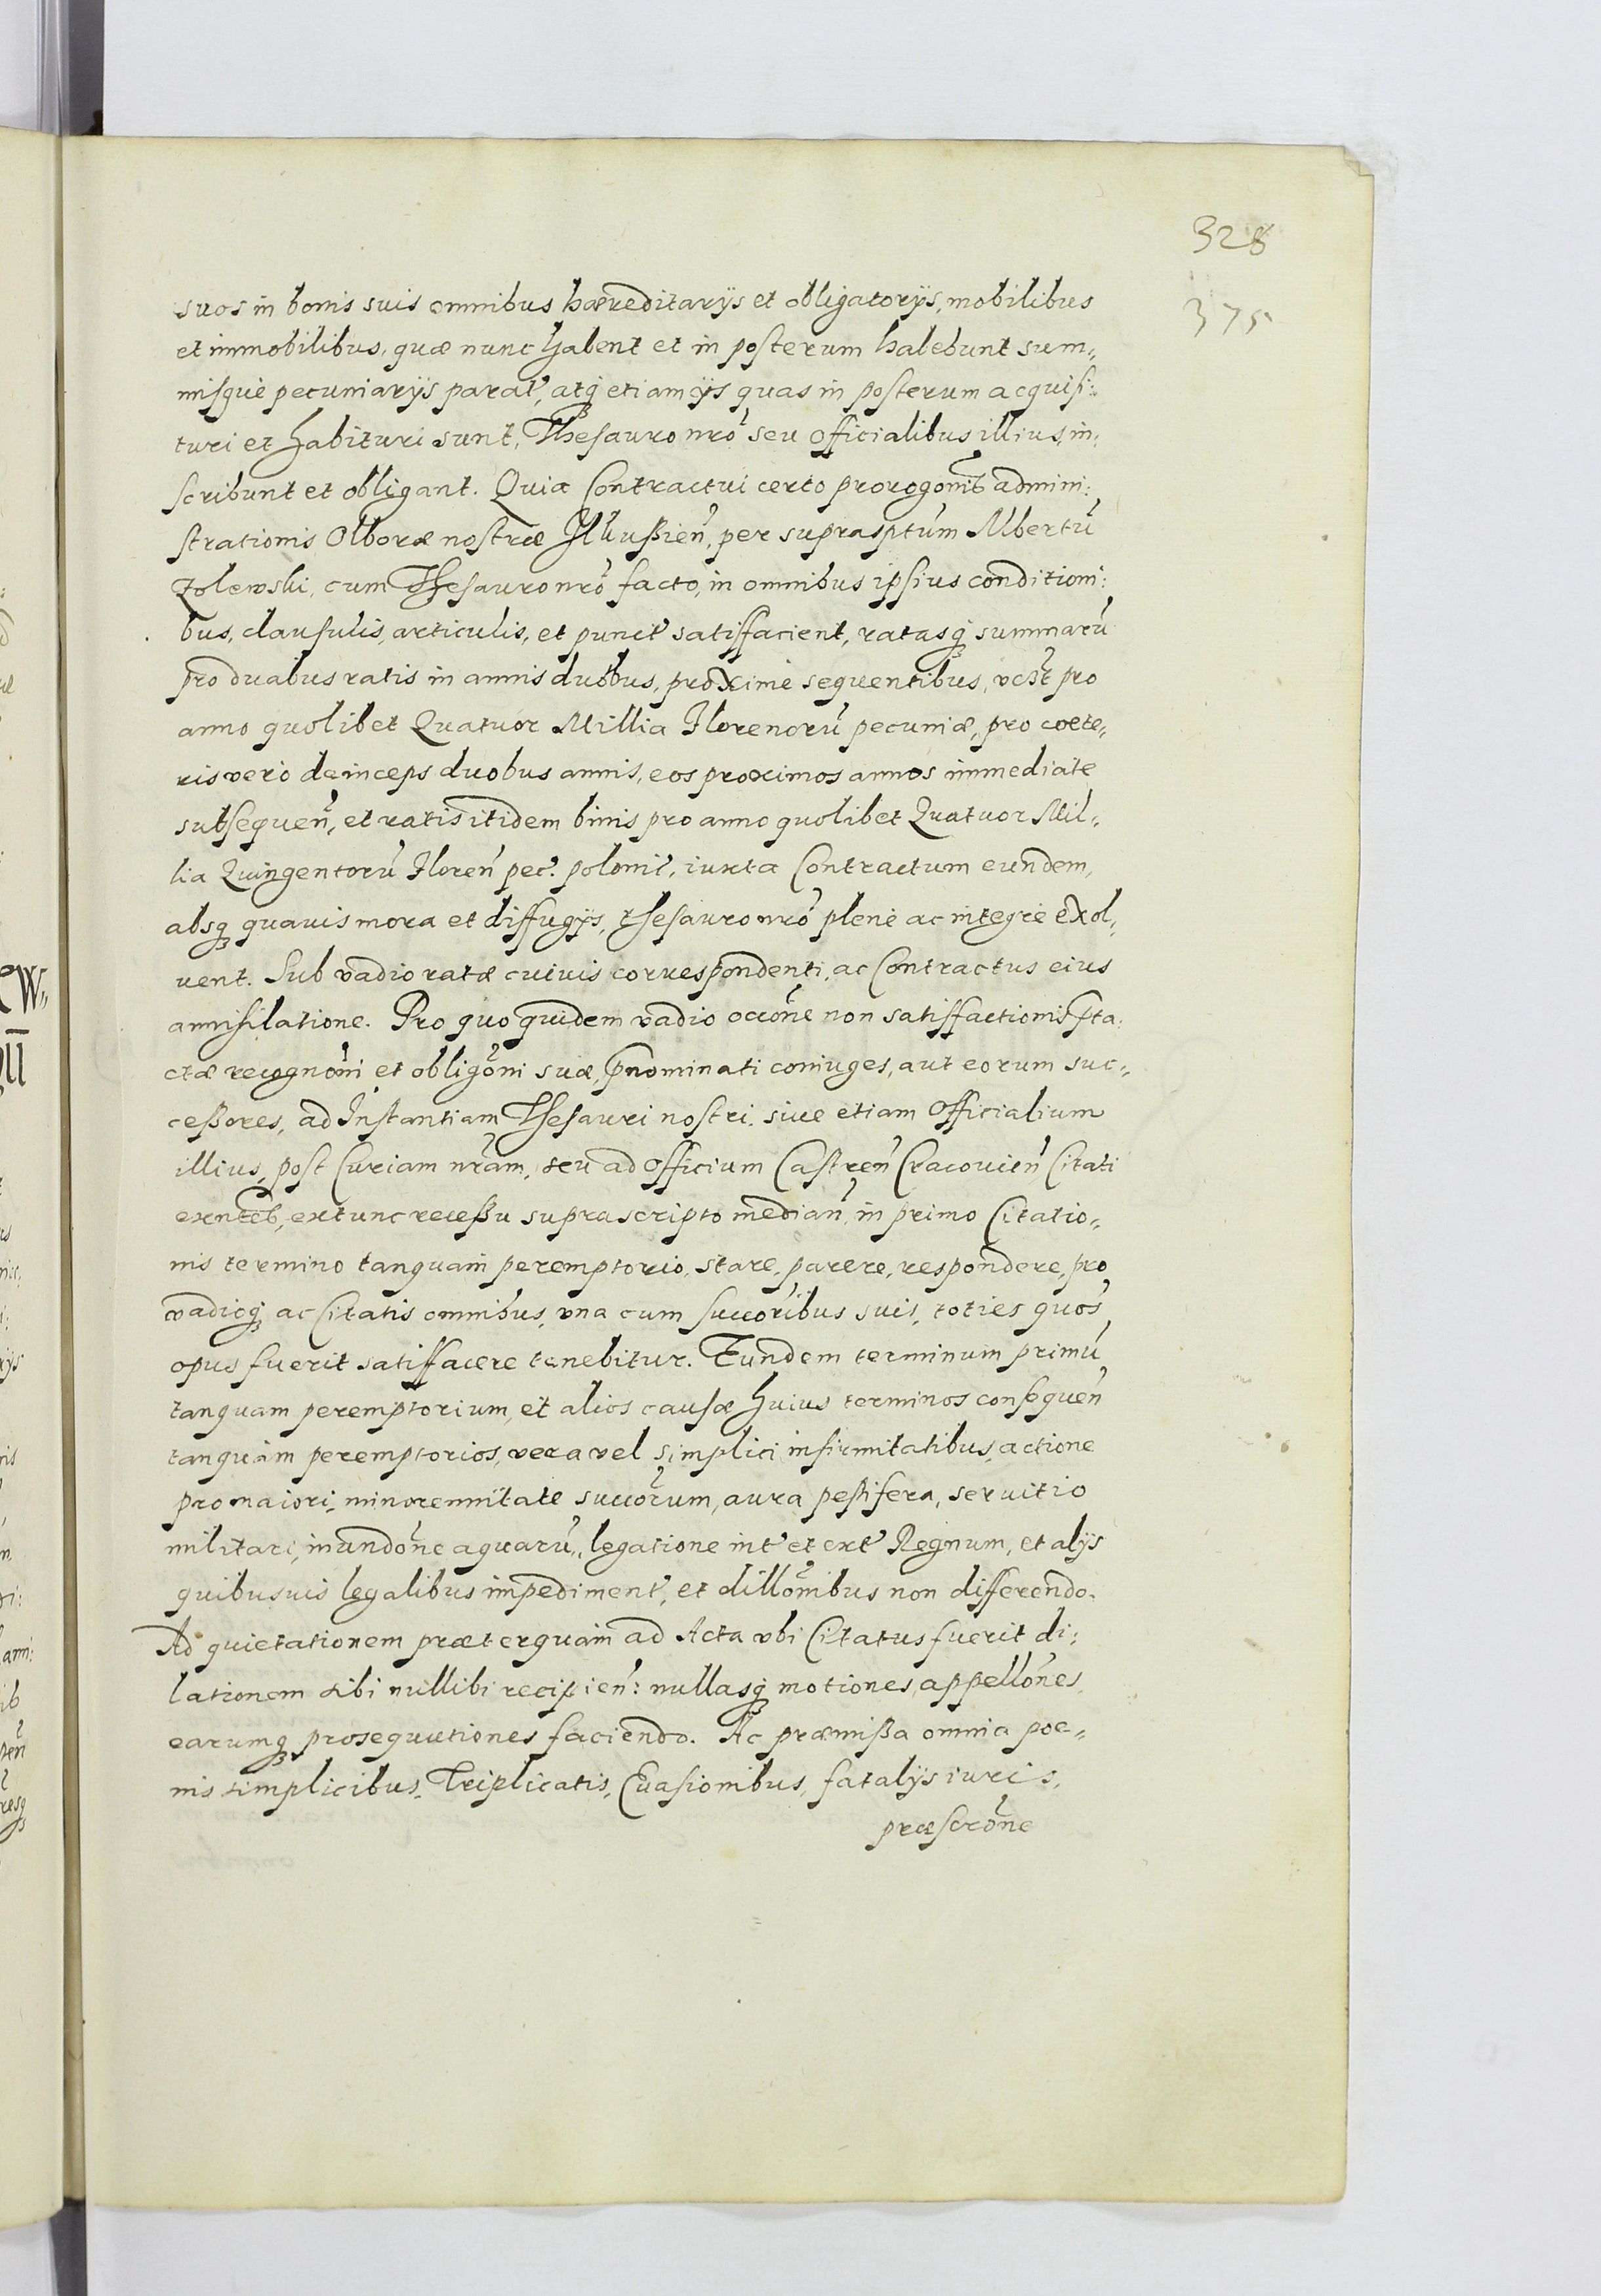 328
375
suos in bonis suis omnibus hæreditarijs et obligatorijs, mobilibus
et immobilibus, quæ nunc habent et in posterum habebunt sum„
misque pecuniarijs parat, atq etiam ijs quas in posterum acquisi:
turi et habituri sunt, Thesauro nro seu officialibus illius, in:
scribunt et obligant. Quia Contractui certo prorogonis admini:
strationis Olboræ nostræ Ilkußien, per suprasptum Albertu
Zolewski, cum Thesauro nro facto, in omnibus ipsius conditioni:
bus, clausulis, articulis, et punct satisfacient, ratasq summaru
pro duabus ratis in annis duobus, proxime sequentibus, vcz pro
anno quolibet Quatuor Millia Florenoru pecuniæ, pro cæte„
ris vero deinceps duobus annis, eos proximos annos immediate
subsequen, et ratis itidem binis pro anno quolibet Quatuor Mil„
lia Quingentoru Floren pec. polonic, iuxta Contractum eundem,
absq quauis mora et diffugijs, thesauro nro plene ac integre exol„
uent. Sub vadio ratæ cuiuis correspondenti, ac Contractus eius
annihilatione. Pro quo quidem vadio occone non satisfactionis pta:
ctæ recognoni et obligoni suæ, pnominati coniuges, aut eorum suc„
ceßores, ad Instantiam Thesauri nostri, siue etiam Officialium
illius, post Curiam nram, seu ad officium Castren Cracouien Citati
extunc receßu suprascripto median, in primo Citatio„
nis termino tanquam peremptorio, stare, parere, respondere, pro
vadioq ac Citatis omnibus, vna cum succoribus suis, toties quos
opus fuerit satisfacere tenebitur. Eundem terminum primu
tanquam peremptorium, et alios causæ huius terminos consequen
tanquam peremptorios, vera vel simplici infirmitatibus, actione
pro maiori, minorennitate succorum, aura pestifera, seruitio
militari, inundone aquaru, legatione int et ext Regnum, et alijs
quibusuis legalibus impediment, et dillonibus non differendo.
Ad quietationem præterquam ad Acta vbi Citatus fuerit di:
lationem sibi nullibi recipien: nullasq motiones, appellones
earumq prosequutiones faciendo. Ac præmißa omnia poe„
nis simplicibus, Triplicatis, Euasionibus, fatalijs iuris,
præscrone